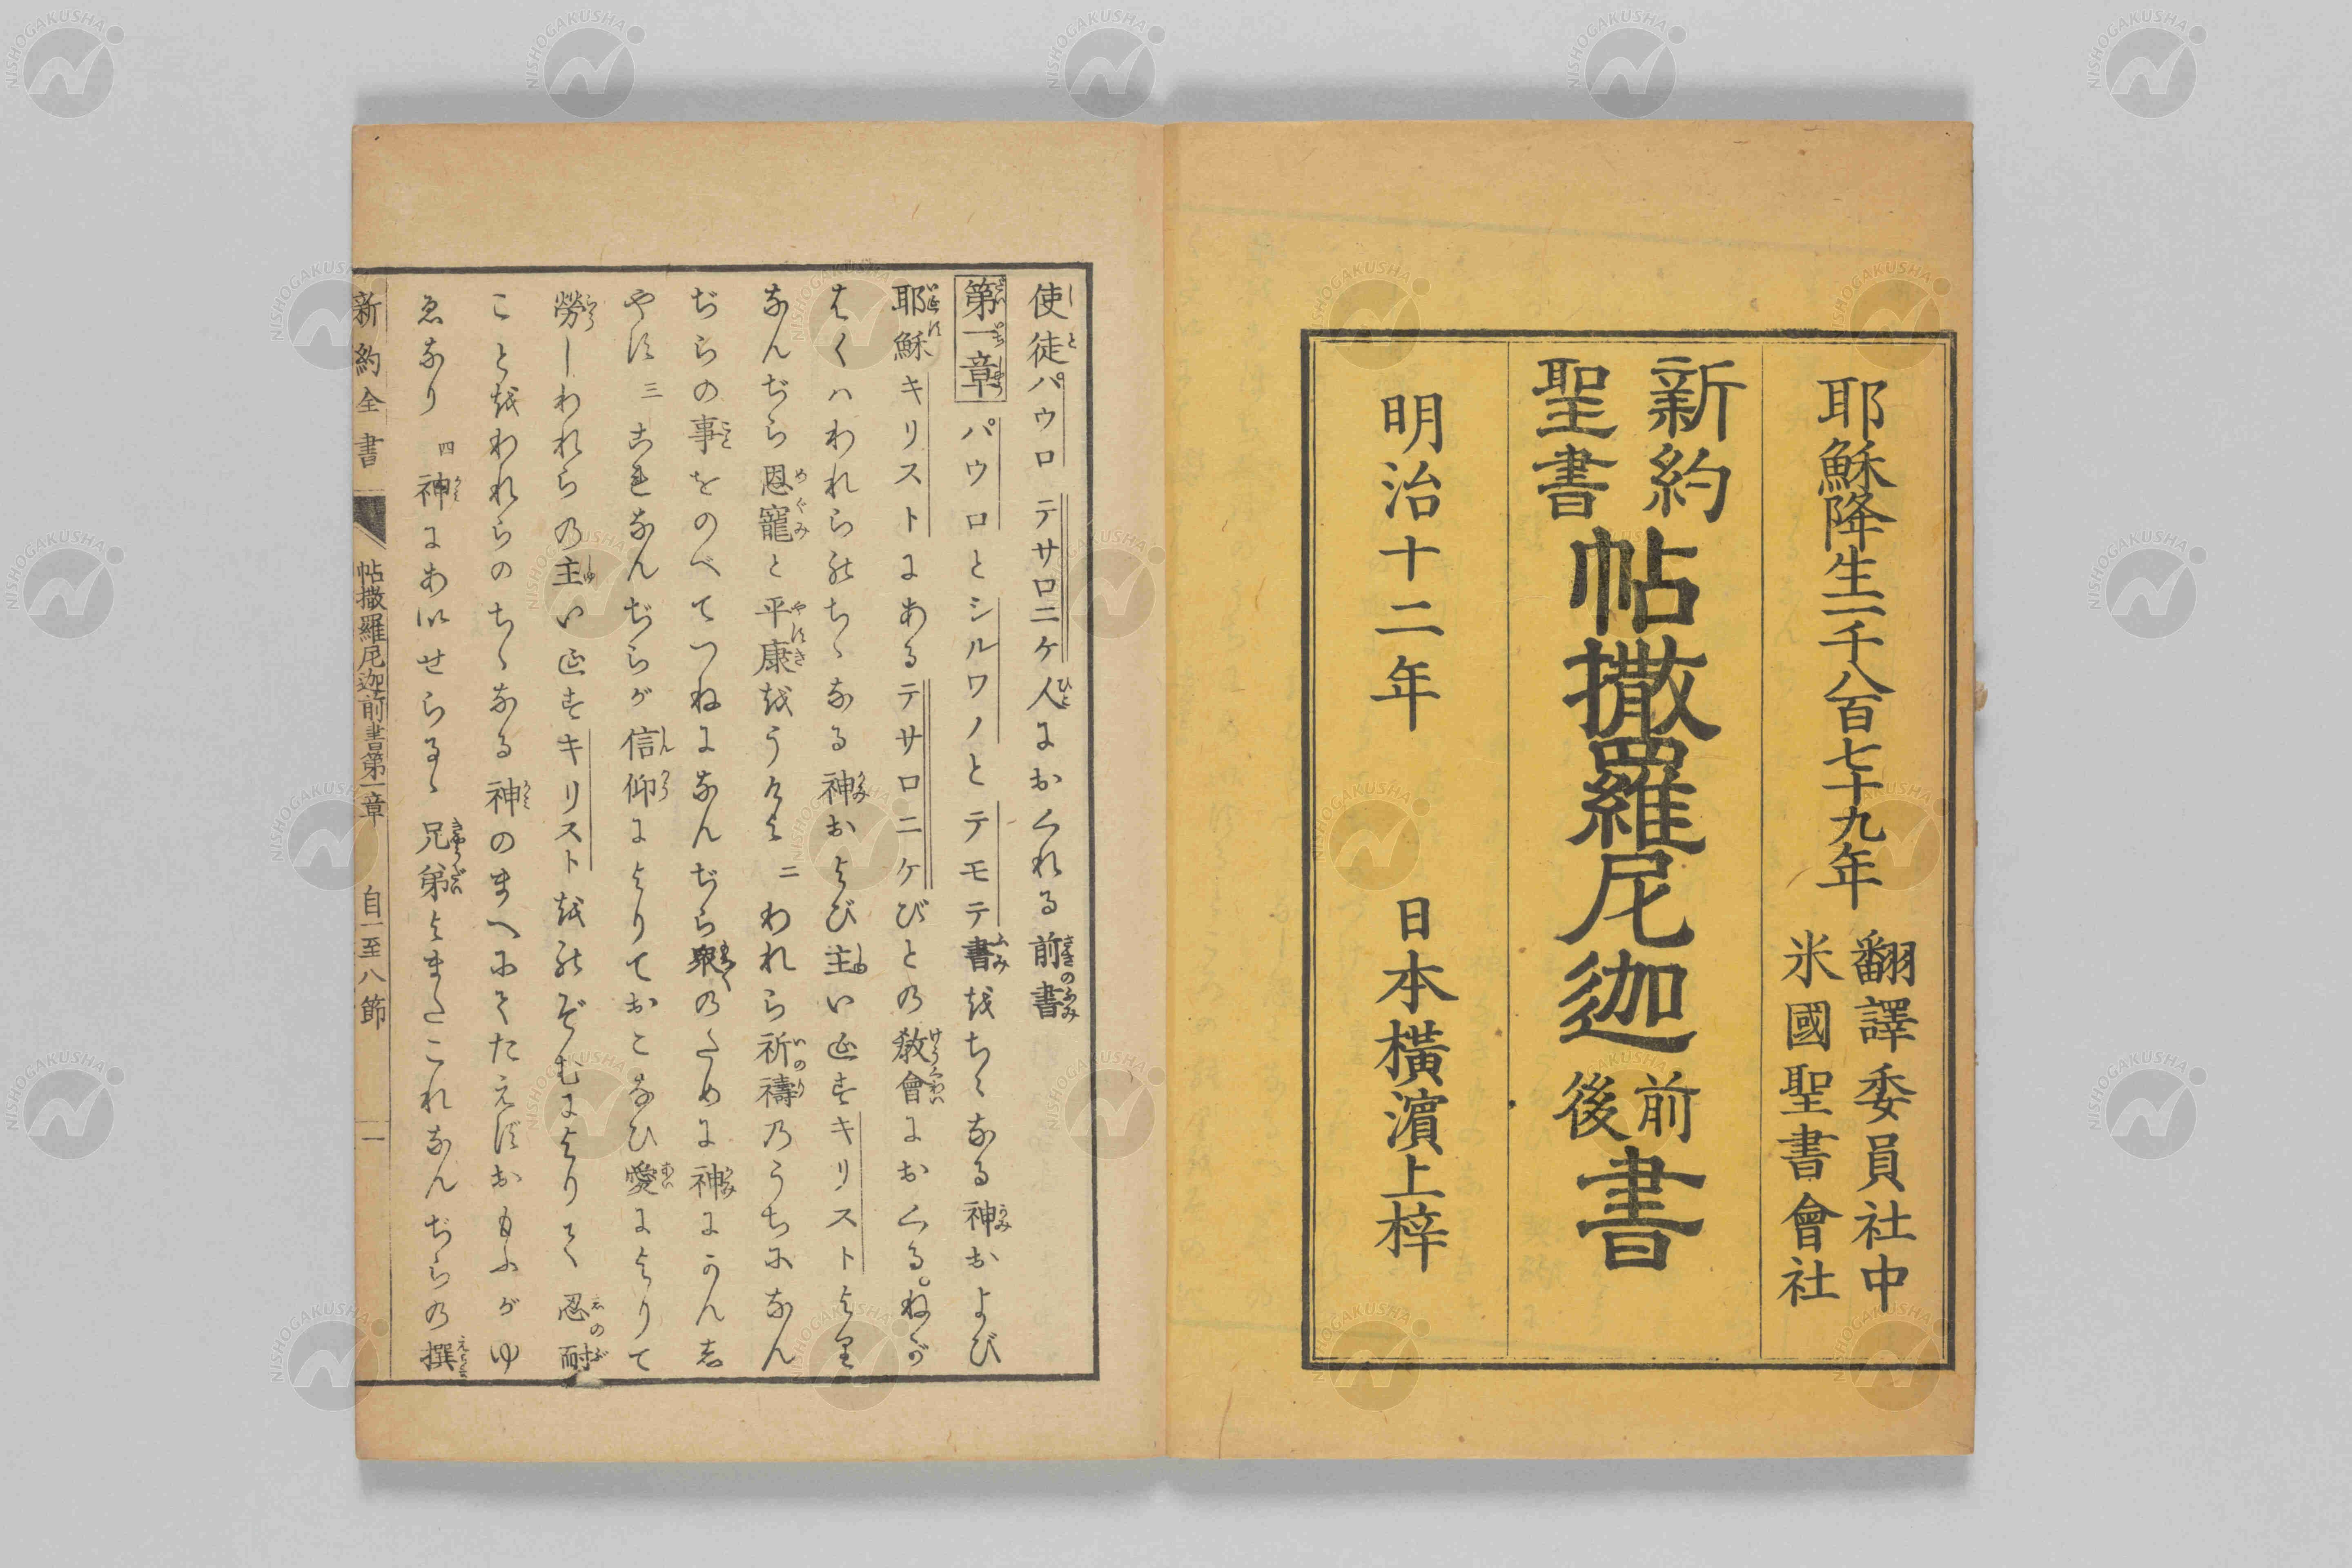 耶穌降生一千八百七十九年
翻譯委員社中
米國聖書會社
新約
聖書
帖撒羅尼迦
前
後
書
明治十二年 日本橫濱上梓
使徒パウロテサロニケ人におくれる前書
第一章 パウロとシルワノとテモテ書をちゝなる神および
耶穌キリストにあるテサロニケびとの敎會におくる。ねが
はくハわれらのちゝなる神および主いエスキリストより
なんぢら恩寵と平康をうけよ 二 われら祈禱のうちになん
ぢらの事をのべてつねになんぢら衆のために神にかんしや
やす 三 これなんぢらが信仰によりておこなひ愛によりて
勞しわれらの主いエスキリストをのぞむによりて忍耐
ことをわれらのちゝなる神のまへにてたえずおもふがゆ
ゑなり 四 神にあいせらるゝ兄弟よまたこれなんぢらの撰
新約全書 帖撒羅尼迦前書第一章 自一至八節 一
NISHOGAKUSHA